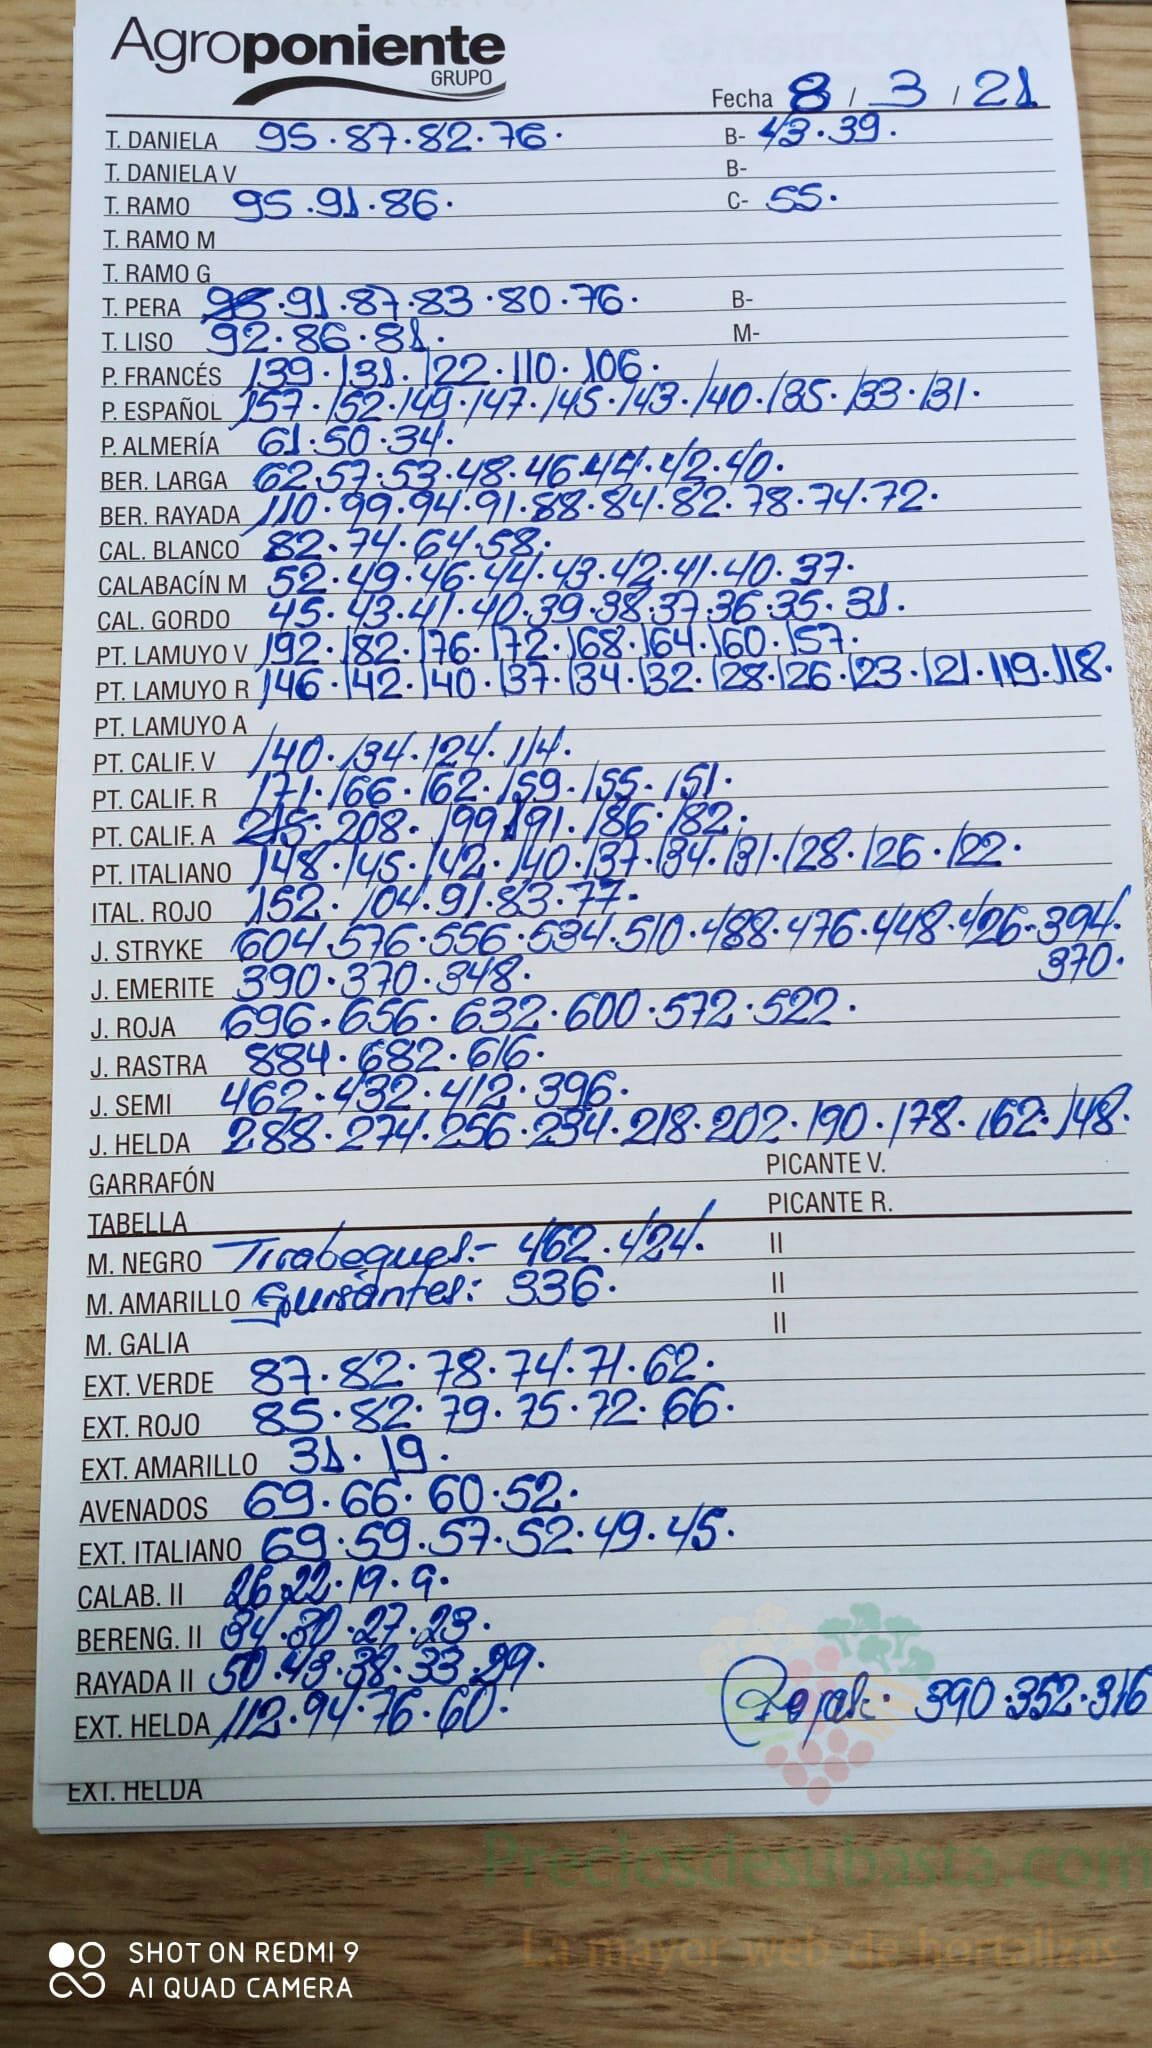 Agroponiente
GRUPO
Fecha 8 / 3 / 21
T. DANIELA 95·87·82·76· B- 43·39·
T. DANIELA V B-
T. RAMO 95·91·86· C- 55·
T. RAMO M
T. RAMO G
T. PERA 95·91·87·83·80·76· B-
T. LISO 92·86·81· M-
P. FRANCÉS 139·131·122·110·106·
P. ESPAÑOL 157·152·149·147·145·143·140·135·133·131·
P. ALMERÍA 61·50·34·
BER. LARGA 62·57·53·48·46·44·42·40·
BER. RAYADA 110·99·94·91·88·84·82·78·74·72·
CAL. BLANCO 82·74·64·58·
CALABACÍN M 52·49·46·44·43·42·41·40·37·
CAL. GORDO 45·43·41·40·39·38·37·36·35·31·
PT. LAMUYO V 192·182·176·172·168·164·160·157·
PT. LAMUYO R 146·142·140·137·134·132·128·126·123·121·119·118·
PT. LAMUYO A
PT. CALIF. V 140·134·124·114·
PT. CALIF. R 171·166·162·159·155·151·
PT. CALIF. A 215·208·199·191·186·182·
PT. ITALIANO 148·145·142·140·137·134·131·128·126·122·
ITAL. ROJO 152·104·91·83·77·
J. STRYKE 604·576·556·534·510·488·476·448·426·394·
370·
J. EMERITE 390·370·348·
J. ROJA 696·656·632·600·572·522·
J. RASTRA 884·682·616·
J. SEMI 462·432·412·396·
J. HELDA 288·274·256·234·218·202·190·178·162·148·
GARRAFÓN PICANTE V.
TABELLA PICANTE R.
M. NEGRO Tirabeques:- 462·424· II
M. AMARILLO Guisantes: 336· II
M. GALIA II
EXT. VERDE 87·82·78·74·71·62·
EXT. ROJO 85·82·79·75·72·66·
EXT. AMARILLO 31·19·
AVENADOS 69·66·60·52·
EXT. ITALIANO 69·59·57·52·49·45·
CALAB. II 26·22·19·9·
BERENG. II 34·30·27·23·
RAYADA II 50·43·38·33·29·
EXT. HELDA 112·94·76·60· 390·352·316
EXT. HELDA
Preciosdesubasta.com
La mayor web de hortalizas
SHOT ON REDMI 9
AI QUAD CAMERA